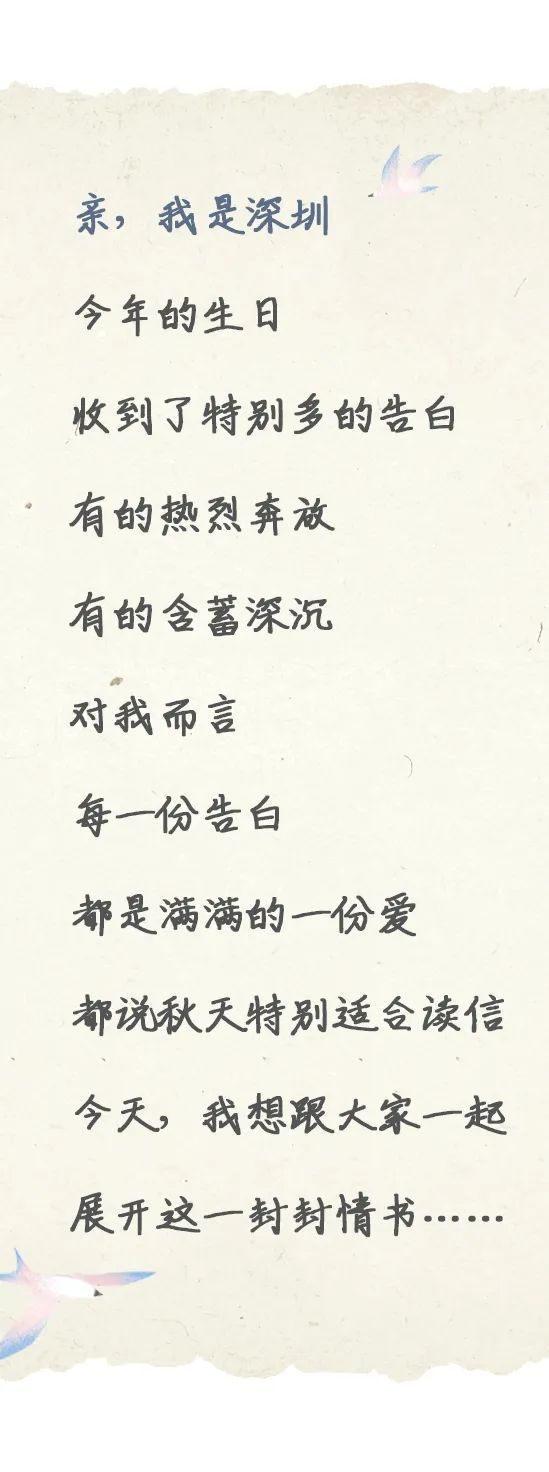 亲，我是深圳
今年的生日
收到了特别多的告白
有的热烈奔放
有的含蓄深沉
对我而言
每一份告白
都是满满的一份爱
都说秋天特别适合读信
今天，我想跟大家一起
展开这一封封情书……